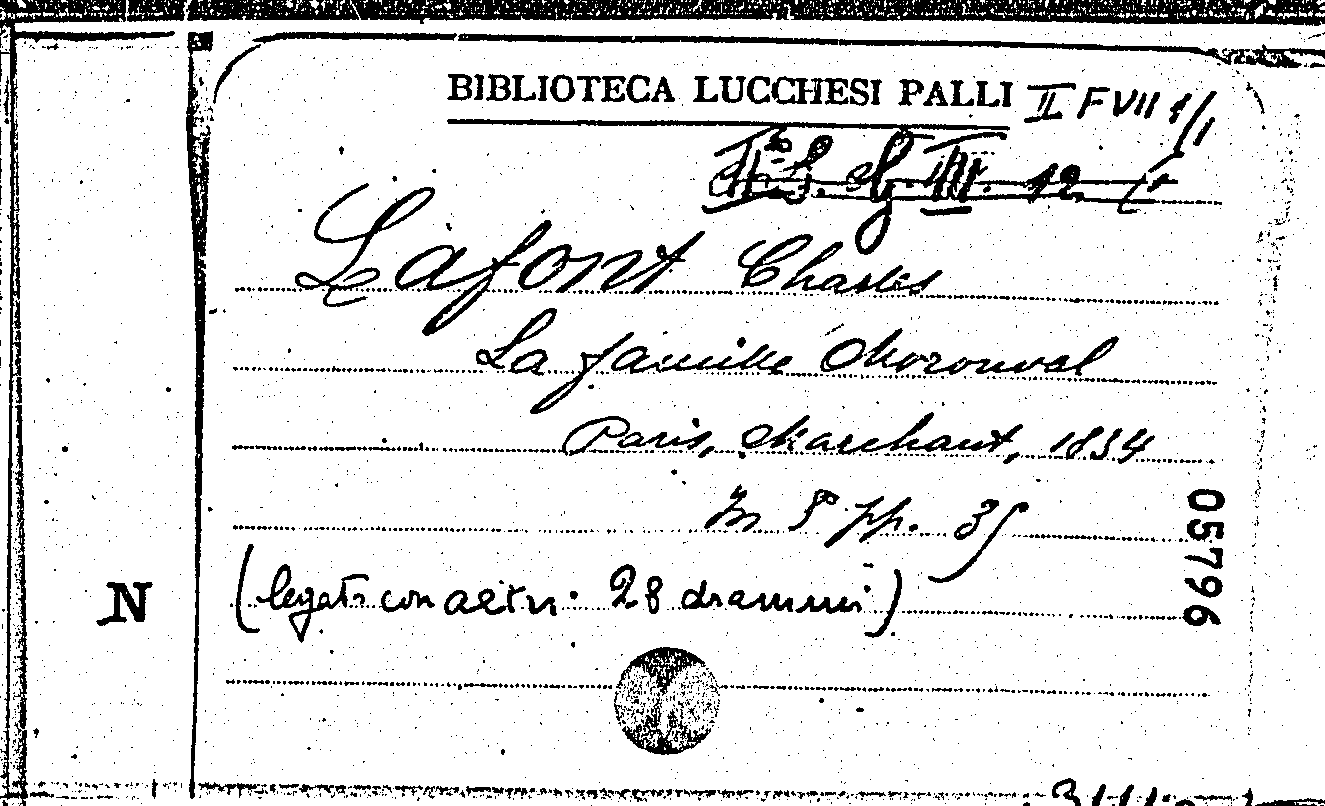 BIBLIOTECA LUCCHESI PALLI II F VII 1/1
Lafont Charles
La famille Moronval
Paris, Marchant, 1834
In 8° pp. 35
(legato con altri 28 drammi)
05796
N